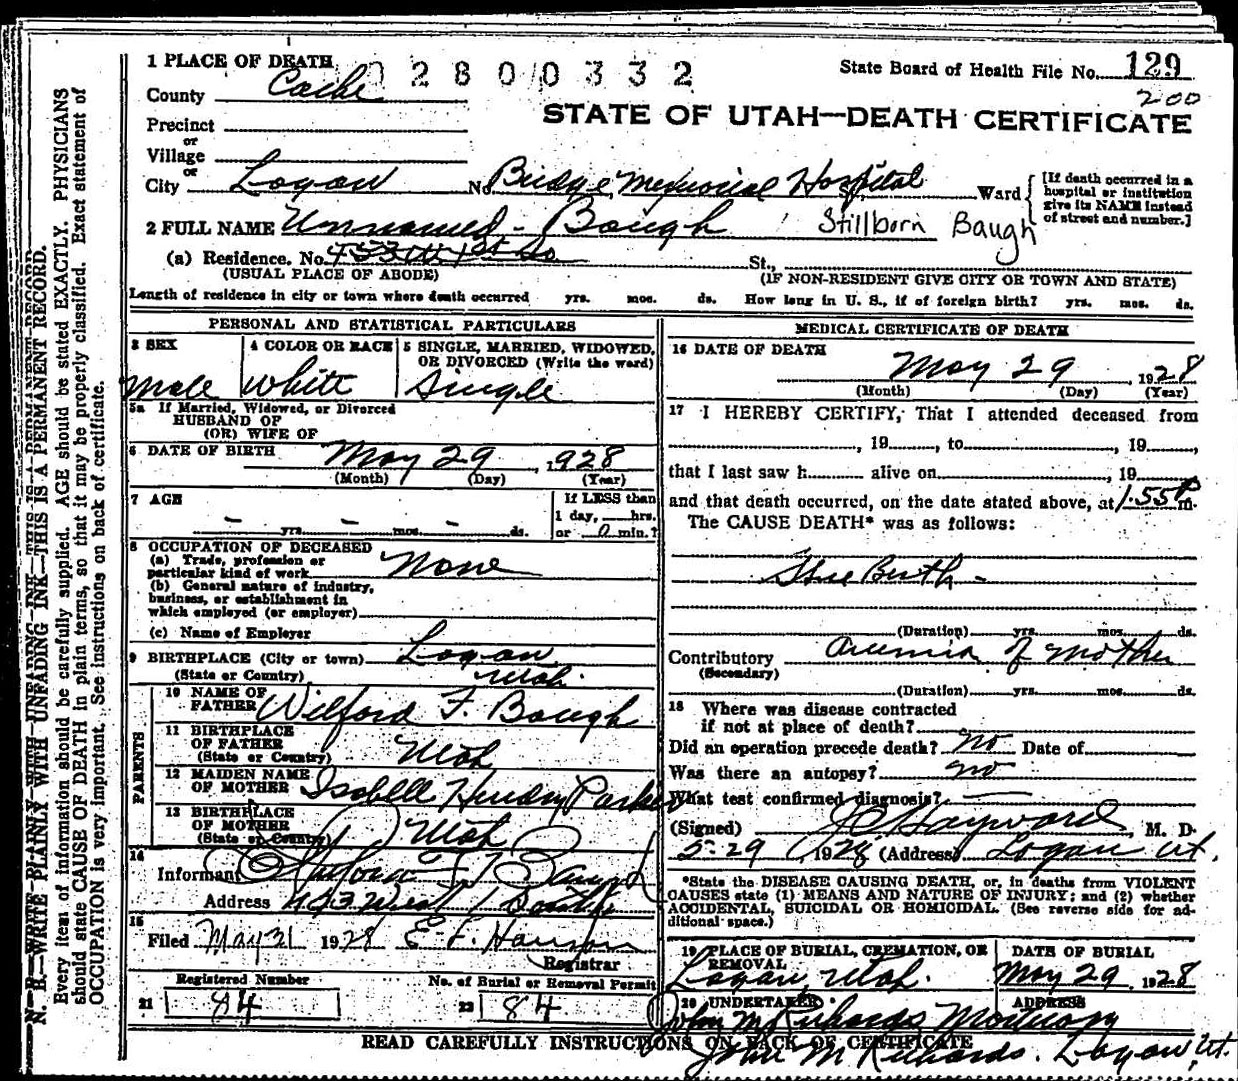 1 PLACE OF DEATH
0 2 8 0 0 3 3 2
State Board of Health File No. 129
200
County Cache
STATE OF UTAH—DEATH CERTIFICATE
Precinct
or
Village
or
City Logan No. Budge Memorial Hospital St., Ward
[If death occurred in a hospital or institution give its NAME instead of street and number.]
2 FULL NAME Unnamed - Baugh Stillborn Baugh
(a) Residence. No. 1st So St.,
(USUAL PLACE OF ABODE) (IF NON-RESIDENT GIVE CITY OR TOWN AND STATE)
Length of residence in city or town where death occurred yrs. mos. ds. How long in U. S., if of foreign birth? yrs. mos. ds.
PERSONAL AND STATISTICAL PARTICULARS
3 SEX 4 COLOR OR RACE 5 SINGLE, MARRIED, WIDOWED, OR DIVORCED (Write the word)
Male White Single
5a If Married, Widowed, or Divorced
HUSBAND OF
(OR) WIFE OF
6 DATE OF BIRTH May 29, 1928
(Month) (Day) (Year)
7 AGE If LESS than
1 day, hrs.
- yrs. - mos. - ds. or 0 min.?
8 OCCUPATION OF DECEASED
(a) Trade, profession or
particular kind of work None
(b) General nature of industry,
business, or establishment in
which employed (or employer)
(c) Name of Employer
9 BIRTHPLACE (City or town) Logan
(State or Country) Utah.
PARENTS
10 NAME OF
FATHER Wilford F. Baugh
11 BIRTHPLACE
OF FATHER
(State or Country) Utah
12 MAIDEN NAME
OF MOTHER Isabell Hendry Parker
13 BIRTHPLACE
OF MOTHER
(State or Country) Utah
14
Informant Wilford F. Baugh
Address West 1 South
15
Filed May 31 1928 E. F. Hanson
Registrar
Registered Number No. of Burial or Removal Permit
21 84 22 84
MEDICAL CERTIFICATE OF DEATH
16 DATE OF DEATH
May 29, 1928
(Month) (Day) (Year)
17 I HEREBY CERTIFY, That I attended deceased from
, 19 , to , 19
that I last saw h alive on , 19
and that death occurred, on the date stated above, at 1.55 P m.
The CAUSE DEATH* was as follows:
Birth -
(Duration) yrs. mos. ds.
Contributory Anemia of Mother
(Secondary)
(Duration) yrs. mos. ds.
18 Where was disease contracted
if not at place of death?
Did an operation precede death? No Date of
Was there an autopsy? No
What test confirmed diagnosis? —
(Signed) J C Hayward, M. D.
5-29, 1928 (Address) Logan Ut.
*State the DISEASE CAUSING DEATH, or, in deaths from VIOLENT
CAUSES state (1) MEANS AND NATURE OF INJURY; and (2) whether
ACCIDENTAL, SUICIDAL OR HOMICIDAL. (See reverse side for ad-
ditional space.)
19 PLACE OF BURIAL, CREMATION, OR REMOVAL DATE OF BURIAL
Logan, Utah. May 29, 1928
20 UNDERTAKER ADDRESS
John M Richards Mortuary
READ CAREFULLY INSTRUCTIONS ON BACK OF CERTIFICATE
John M Richards. Logan, Ut.
N. B.—WRITE PLAINLY WITH UNFADING INK—THIS IS A PERMANENT RECORD.
Every item of information should be carefully supplied. AGE should be stated EXACTLY. PHYSICIANS
should state CAUSE OF DEATH in plain terms, so that it may be properly classified. Exact statement of
OCCUPATION is very important. See instructions on back of certificate.